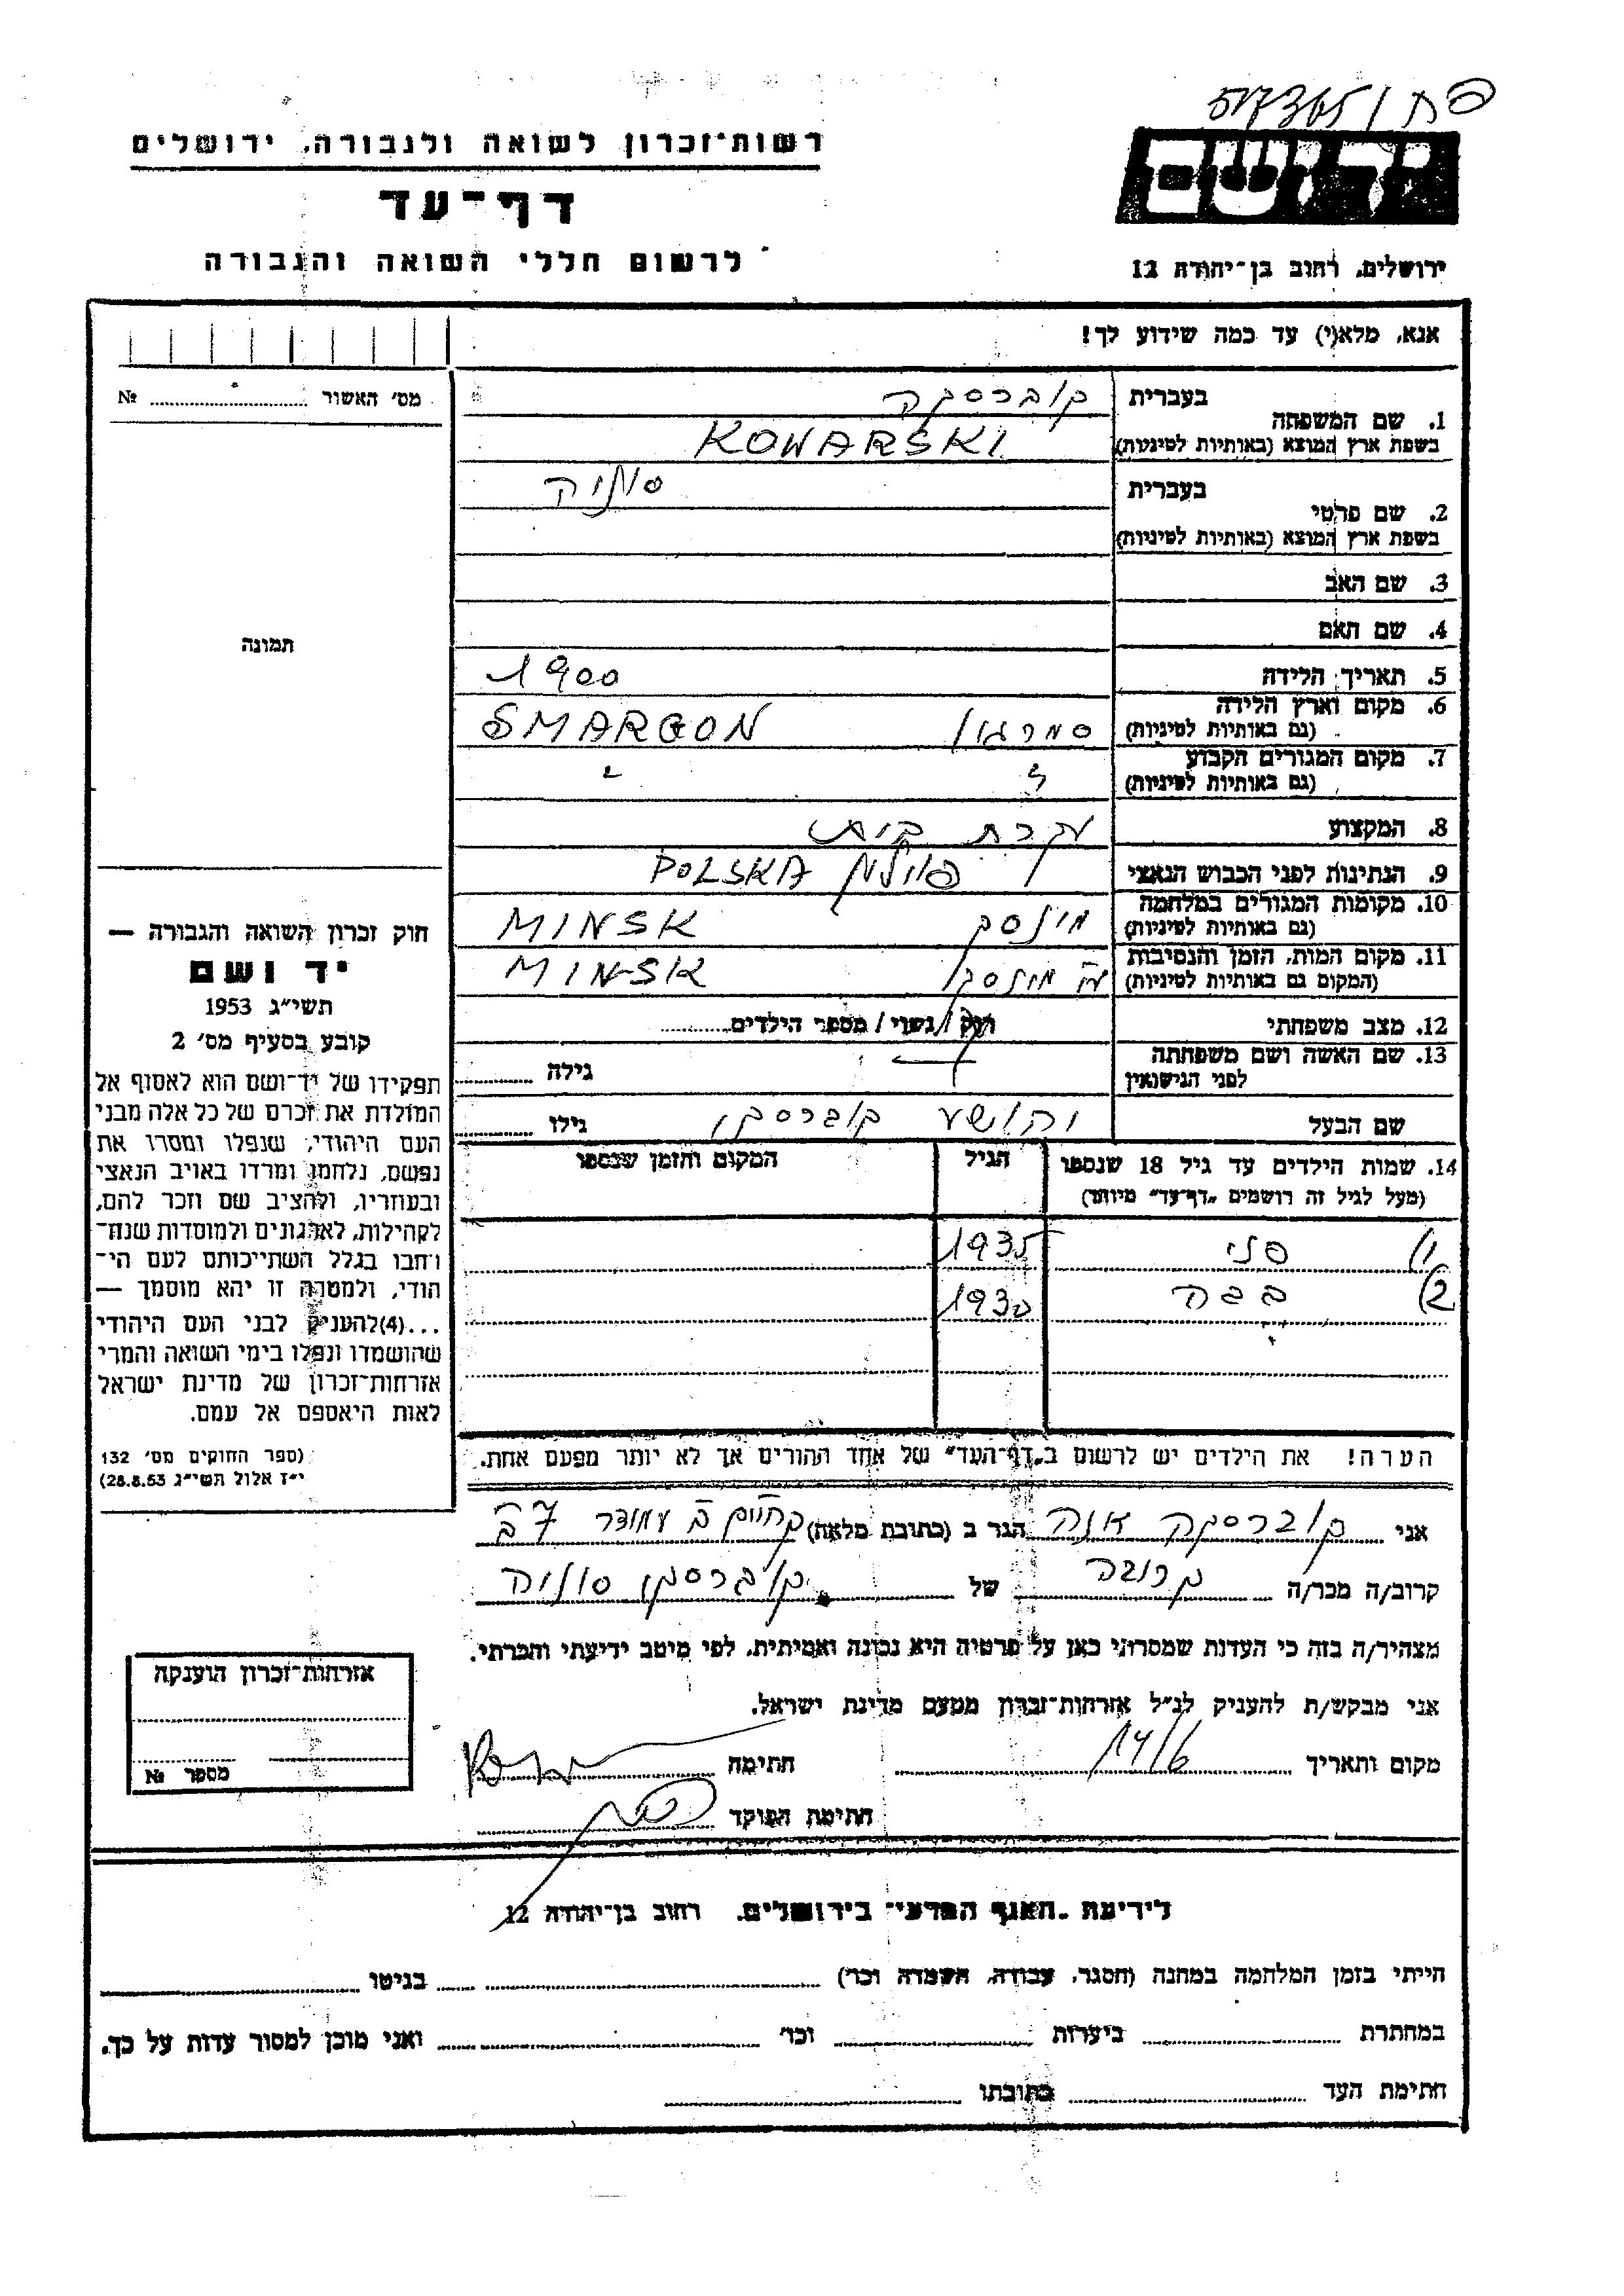 רשות־זכרון לשואה ולגבורה, ירושלים
דף־עד
לרשום חללי השואה והגבורה
יד ושם
ירושלים, רחוב בן־יהודה 12
אנא, מלא(י) עד כמה שידוע לך!
מס׳ האשור № 
1. שם המשפחה
בעברית קוברסקה
בשפת ארץ המוצא (באותיות לטיניות) KOWARSKI
2. שם פרטי
בעברית סוניה
בשפת ארץ המוצא (באותיות לטיניות)
3. שם האב
4. שם האם
5. תאריך הלידה 1900
6. מקום וארץ הלידה
(גם באותיות לטיניות) סמרגון SMARGON
7. מקום המגורים הקבוע
(גם באותיות לטיניות) " "
8. המקצוע עקרת בית
9. הנתינות לפני הכבוש הנאצי פולנית POLSKA
10. מקומות המגורים במלחמה
(גם באותיות לטיניות) מינסק MINSK
11. מקום המות, הזמן והנסיבות
(המקום גם באותיות לטיניות) מינסק MINSK
12. מצב משפחתי רווק / נשוי / מספר הילדים
13. שם האשה ושם משפחתה
לפני הנישואין גילה
שם הבעל יהושע קוברסקי גילו
14. שמות הילדים עד גיל 18 שנספו
(מעל לגיל זה רושמים „דף־עד” מיוחד)
הגיל
המקום והזמן שנספו
1) 1935
2) 1930
הערה! את הילדים יש לרשום ב„דף־העד” של אחד ההורים אך לא יותר מפעם אחת.
תמונה
חוק זכרון השואה והגבורה —
יד ושם
תשי״ג 1953
קובע בסעיף מס׳ 2
תפקידו של יד־ושם הוא לאסוף אל
המולדת את זכרם של כל אלה מבני
העם היהודי, שנפלו ומסרו את
נפשם, נלחמו ומרדו באויב הנאצי
ובעוזריו, ולהציב שם וזכר להם,
לקהילות, לארגונים ולמוסדות שנח־
רבו בגלל השתייכותם לעם הי־
הודי, ולמטרה זו יהא מוסמך —
...(4)להעניק לבני העם היהודי
שהושמדו ונפלו בימי השואה והמרי
אזרחות־זכרון של מדינת ישראל
לאות היאספם אל עמם.
(ספר החוקים מס׳ 132
י״ז אלול תשי״ג 28.8.53)
אני קוברסקה אנה הגר ב (כתובת מלאה)
קרוב/ה מכר/ה קרובה של קוברסקי סוניה
מצהיר/ה בזה כי העדות שמסרתי כאן על פרטיה היא נכונה ואמיתית, לפי מיטב ידיעתי והכרתי.
אני מבקש/ת להעניק לנ״ל אזרחות־זכרון מטעם מדינת ישראל.
מקום ותאריך חתימה
חתימת הפוקד
אזרחות־זכרון הוענקה
מספר №
לידיעת „האגף המדעי” בירושלים, רחוב בן־יהודה 12
הייתי בזמן המלחמה במחנה (הסגר, עבודה, השמדה וכו׳) בגיטו
במחתרת ביערות וכו׳ ואני מוכן למסור עדות על כך.
חתימת העד כתובתו